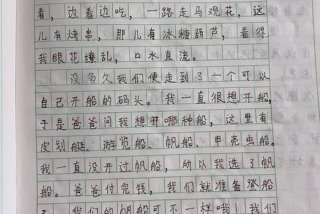 看，边看边吃，一路走马观花，这
儿有烤串，那儿有冰糖葫芦，看得
我眼花缭乱，口水直流。
没多久我们便走到了一个可以
自己开船的码头。我一直很想开船，
于是爸爸问我想开哪种船，这里有
皮划艇、游览船、帆船、甲壳虫船。
我一直没开过帆船，所以我选了帆
船。爸爸付完钱，我们就准备登船
了。我们的帆船可不一样哦！我们